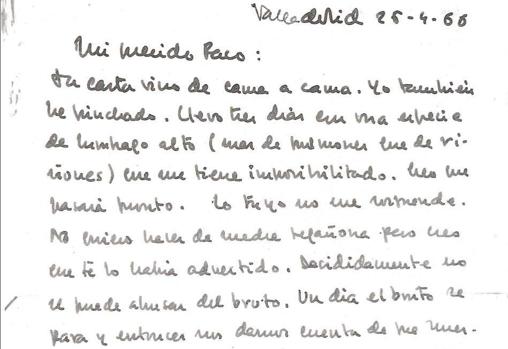 Valladolid 25-4-66
Mi querido Paco:
Tu carta vino de cama a cama. Yo también
he pinchado. Llevo tres días con una especie
de lumbago alto (mas de pulmones que de ri-
ñones) que me tiene imposibilitado. Creo que
pasará pronto. Lo tuyo no me sorprende.
No quiero hacer de madre regañona pero creo
que te lo había advertido. Decididamente no
se puede abusar del bruto. Un día el bruto se
para y entonces nos damos cuenta de que nues-